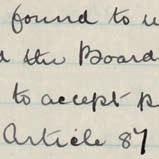 found to u
d the Board
to accept p
Article 87